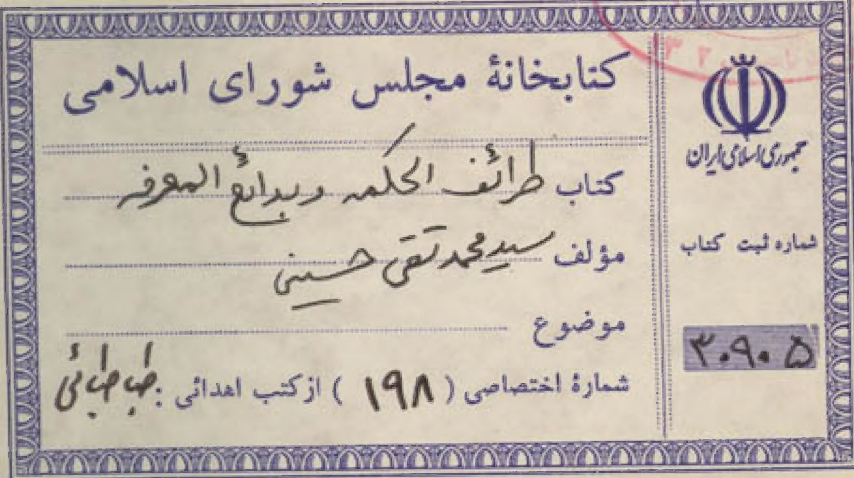 کتابخانهٔ مجلس شورای اسلامی
کتاب طرائف الحکمه و بدائع المعرفه
مؤلف سید محمد تقی حسینی
موضوع
شمارهٔ اختصاصی ( ۱۹۸ ) از کتب اهدائی : طباطبائی
جمهوری اسلامی ایران
شماره ثبت کتاب
۳۰۹۰۵